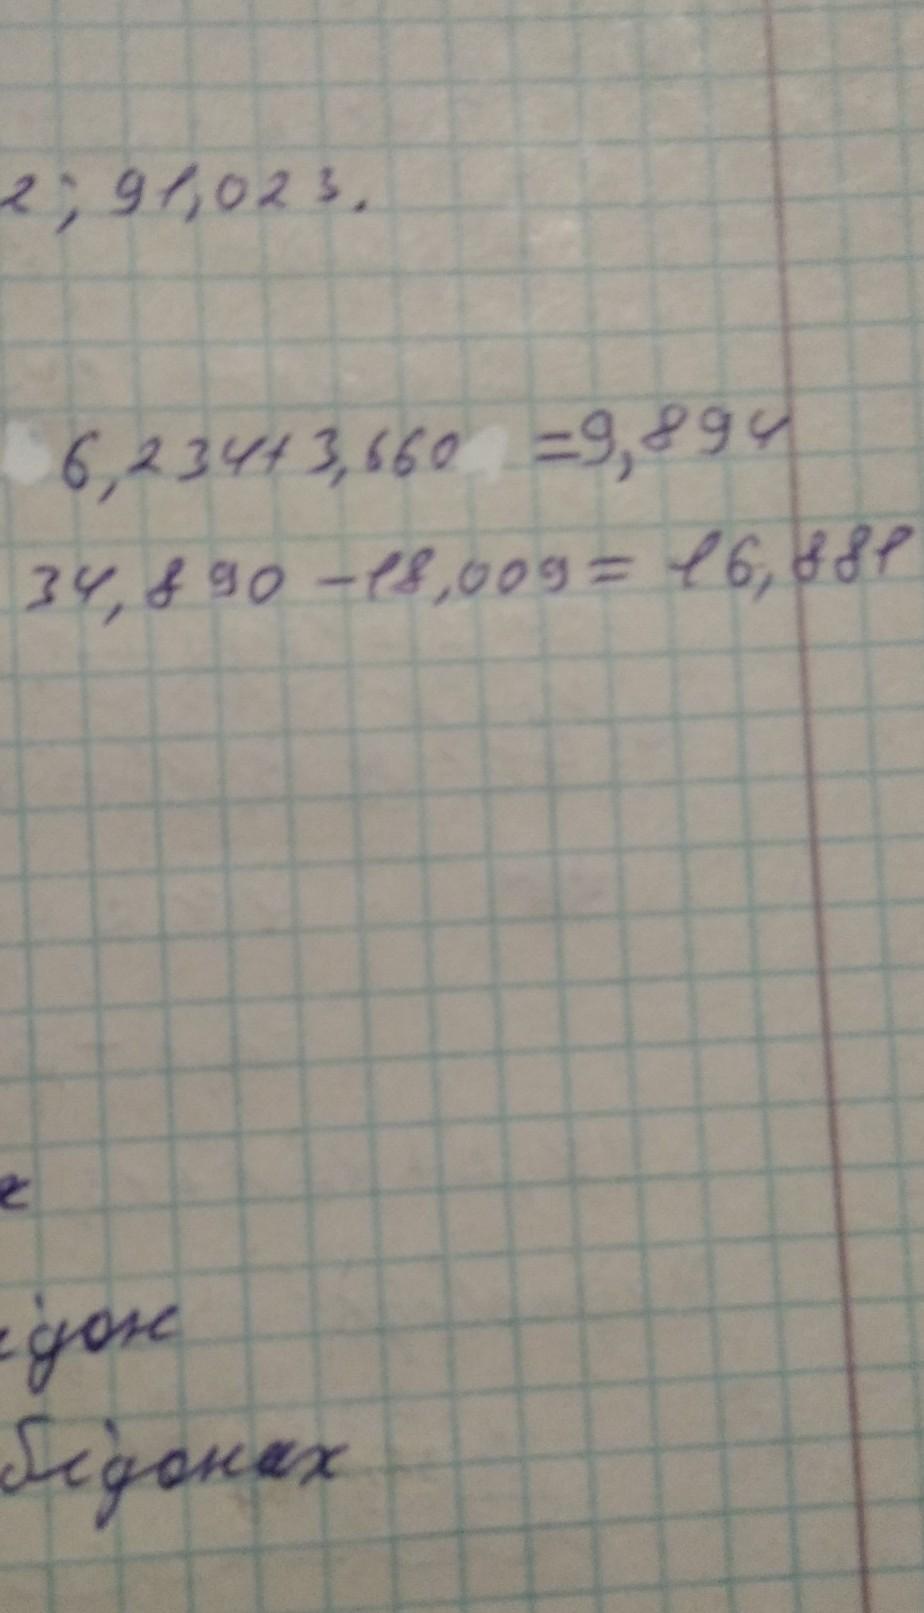 2; 91,023.
6,234+3,660 =9,894
34,890-18,009=16,881
ідон
бідонах